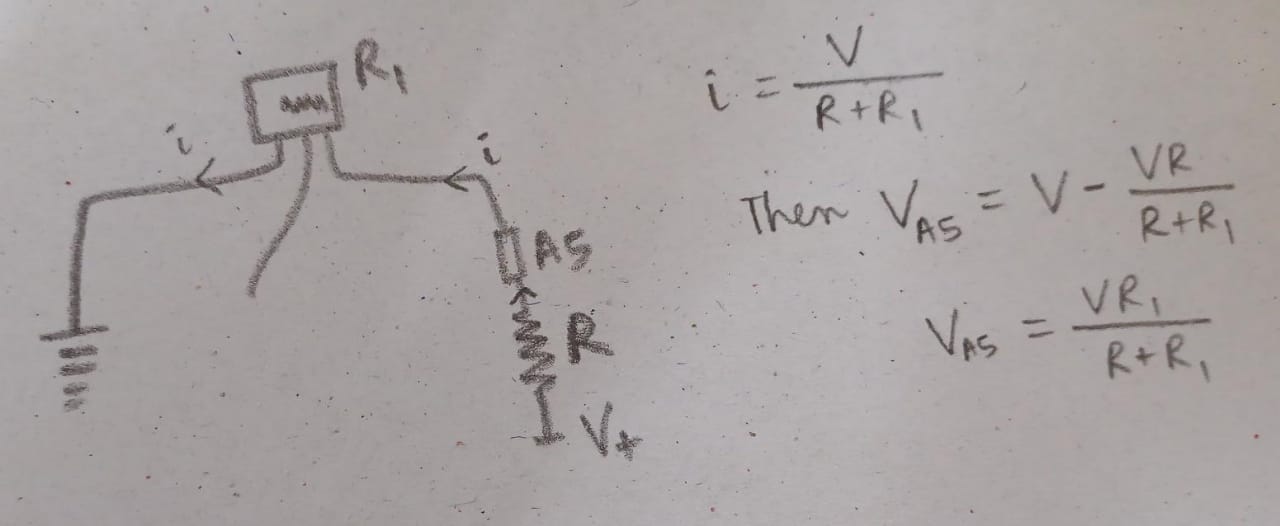 R₁
i
i
A5
R
V+
i = V / (R+R₁)
Then V_A5 = V - VR / (R+R₁)
V_A5 = VR₁ / (R+R₁)